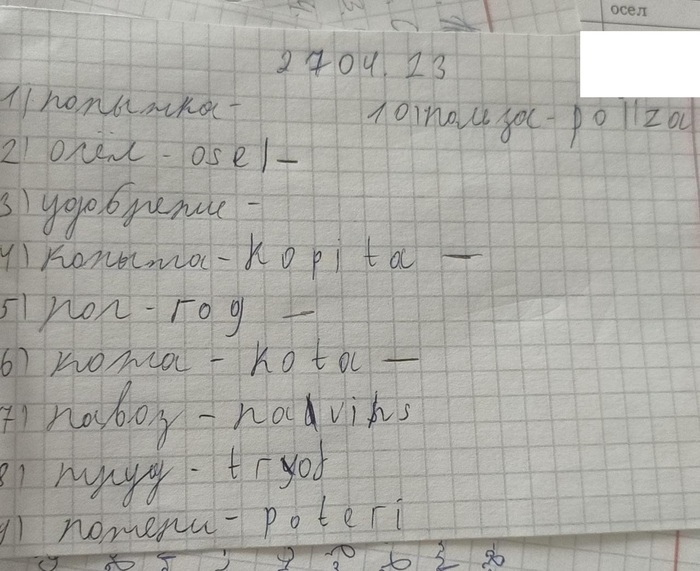 осел
2704.23
1) попытка-
10) польза - poliza
2) осёл - osel -
3) удобрение -
4) копыта - kopita -
5) пол - год -
6) кожа - kota -
7) навоз - navihs
8) труд - tryd
9) потери - poteri